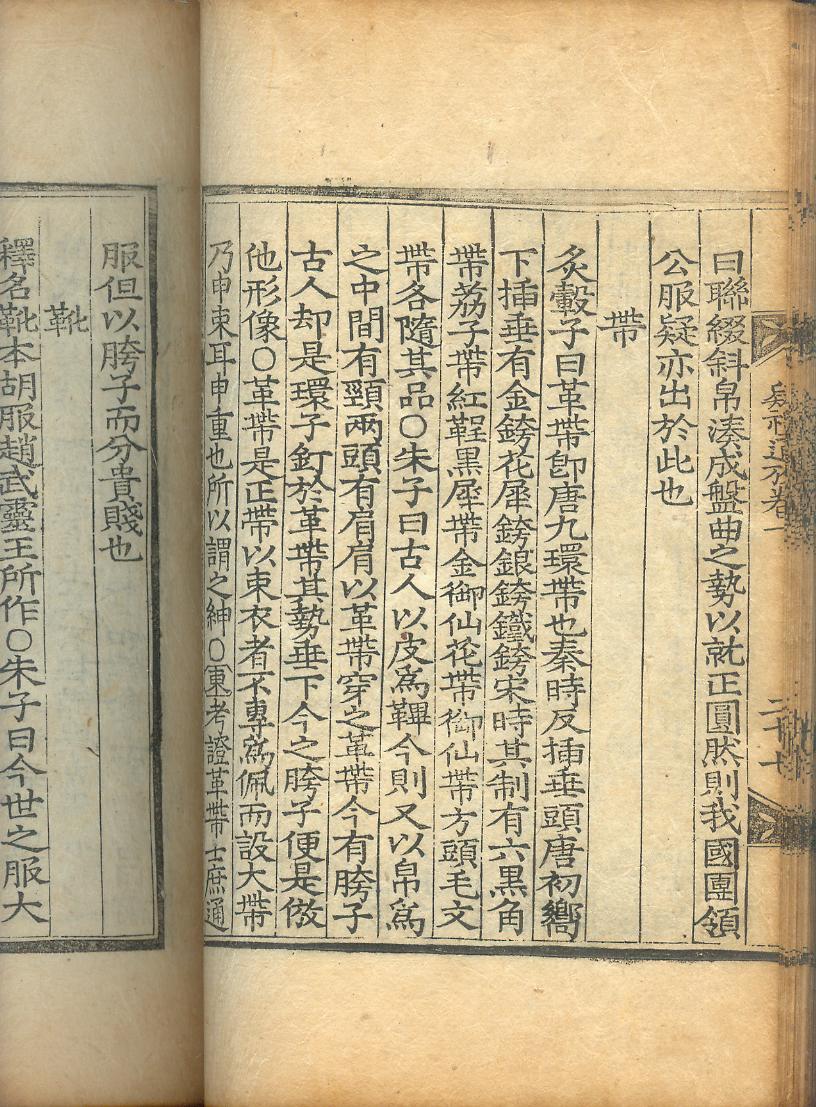 曰聯綴斜帛湊成盤曲之勢以就正圓然則我國團領
公服疑亦出於此也
帶
炙轂子曰革帶卽唐九環帶也秦時反揷垂頭唐初嚮
下揷垂有金銙花犀銙銀銙鐵銙宋時其制有六黑角
帶荔子帶紅鞓黑犀帶金御仙花帶御仙帶方頭毛文
帶各隨其品○朱子曰古人以皮爲鞸今則又以帛爲
之中間有頸兩頭有肩肩以革帶穿之革帶今有胯子
古人却是環子釘於革帶其勢垂下今之胯子便是倣
他形像○革帶是正帶以束衣者不專爲佩而設大帶
乃申束耳申重也所以謂之紳○東考證革帶士庶通
服但以胯子而分貴賤也
靴
釋名靴本胡服趙武靈王所作○朱子曰今世之服大
卷一
二十七